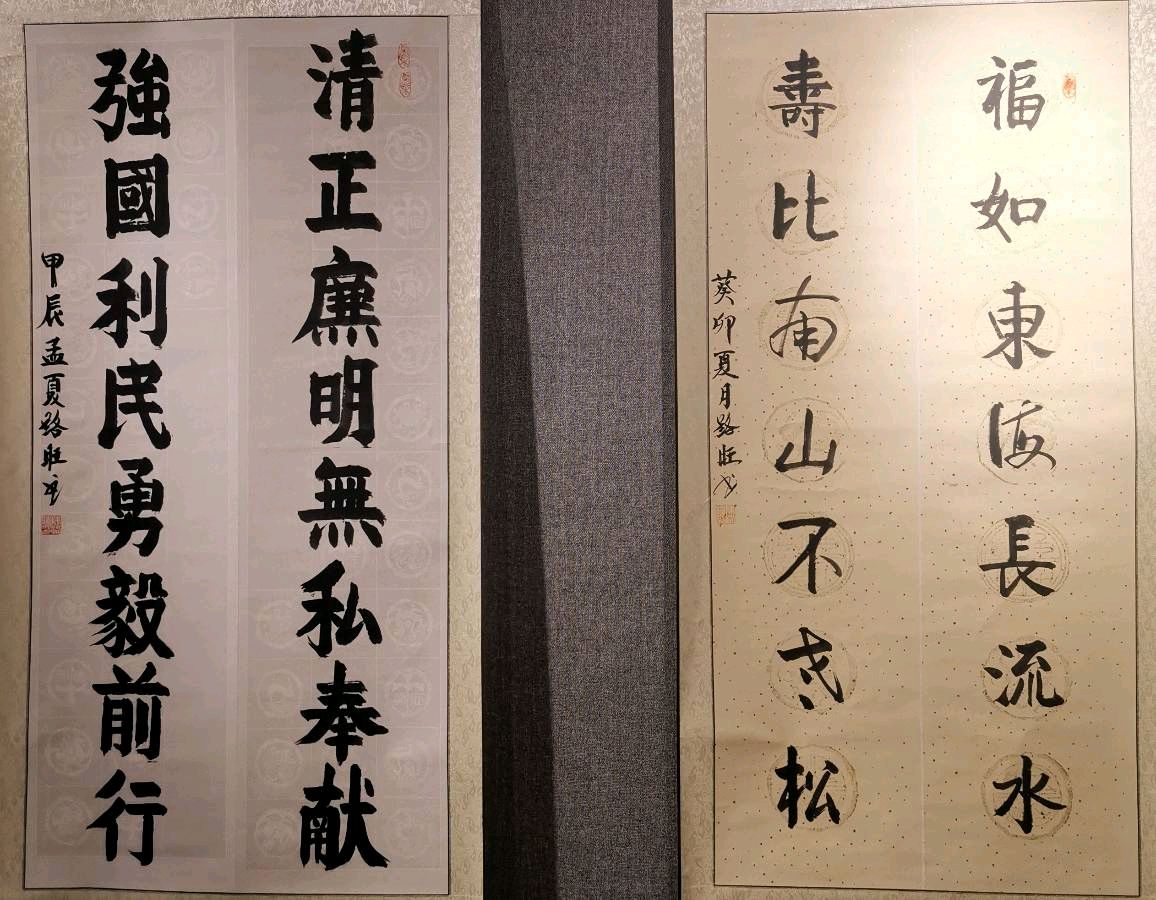 清正廉明無私奉献
強國利民勇毅前行
甲辰孟夏路旺
福如東海長流水
壽比南山不老松
癸卯夏月路旺